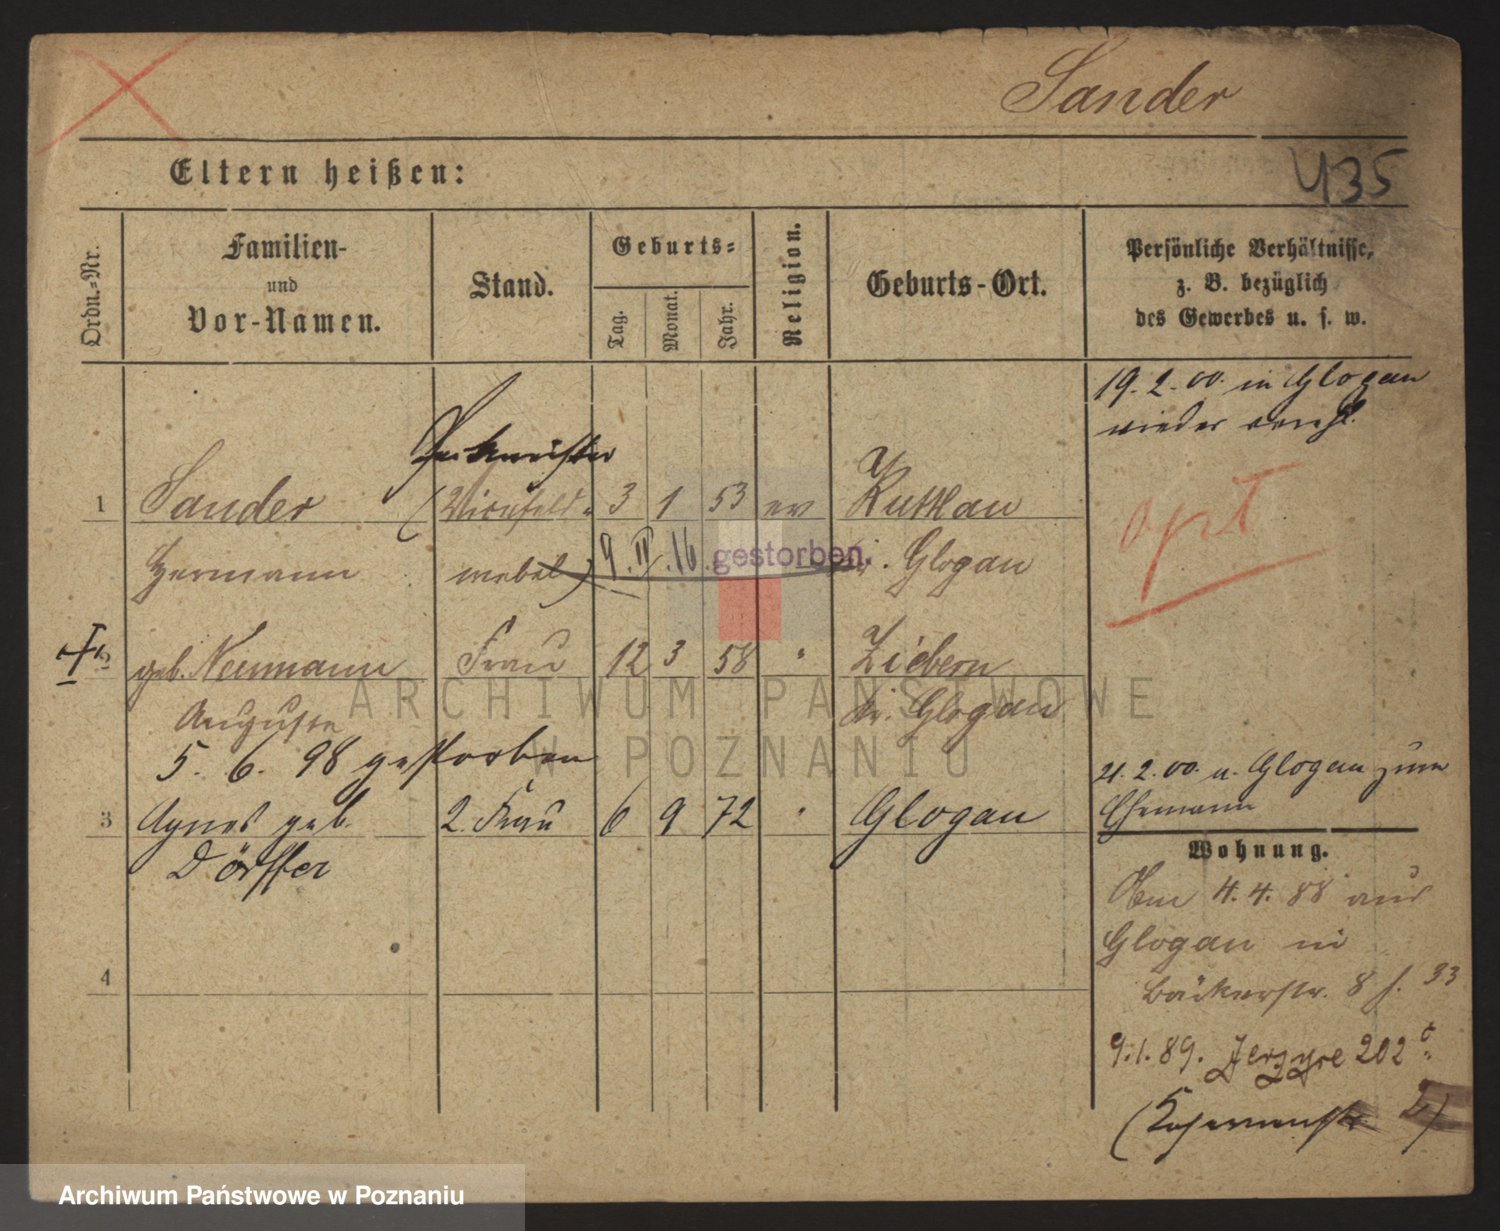 Sander
435
Eltern heißen:
Ordn.-Nr.
Familien-
und
Vor-Namen.
Stand.
Geburts-
Tag.
Monat.
Jahr.
Religion.
Geburts-Ort.
Persönliche Verhältnisse,
z. B. bezüglich
des Gewerbes u. s. w.
19. 2. 00. in Glogau
wieder vereh.
1 Sander 3 1 53 ev Kuttlau
Hermann webel) 9. IV. 16. gestorben. Kr. Glogau
opt
2 geb. Neumann Frau 12 3 58 " Ziebern
Auguste Kr. Glogau
5. 6. 98 gestorben
21. 2. 00. u. Glogau zum
Ehemann
3 Agnes geb. 2. Frau 6 9 72 " Glogau
Dörffer
Wohnung.
4. 4. 88 aus
Glogau in
Bäckerstr. 8 f. 33
4
9.1.89. Jerzyce 202
ARCHIWUM PAŃSTWOWE
W POZNANIU
Archiwum Państwowe w Poznaniu